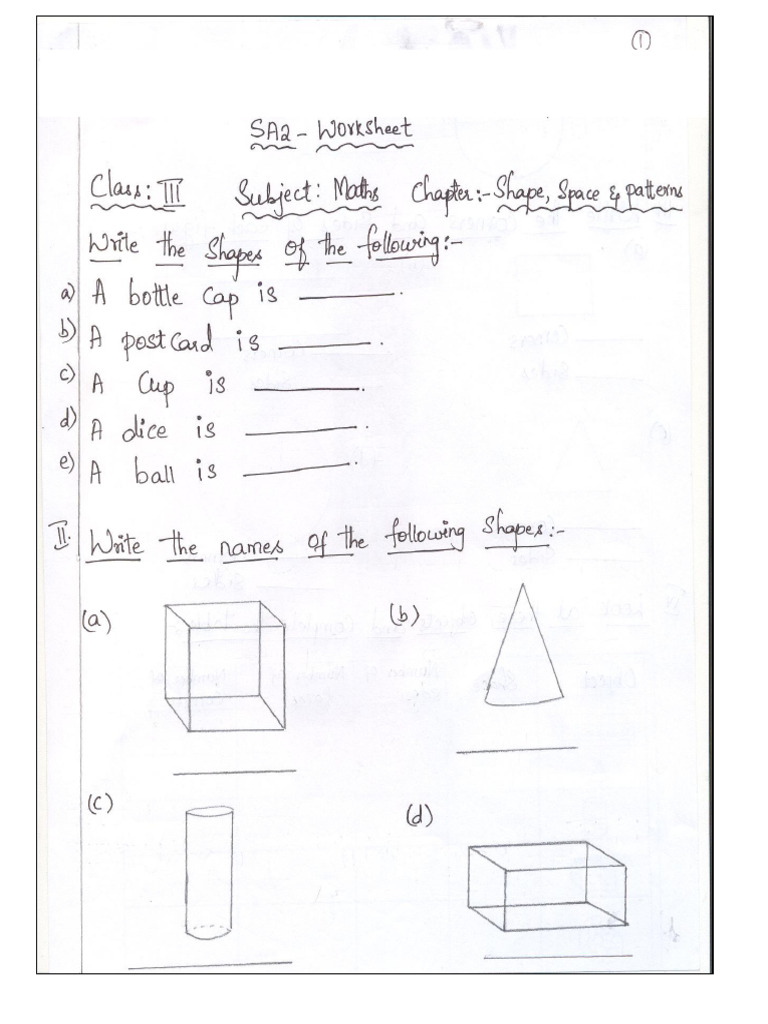 ①
SA2 - Worksheet
Class: III Subject: Maths Chapter:- Shape, Space & patterns
Write the shapes of the following:-
a) A bottle cap is ________.
b) A postcard is ________.
c) A Cup is ________.
d) A dice is ________.
e) A ball is ________.
II. Write the names of the following shapes:-
(a) (b)
(c) (d)